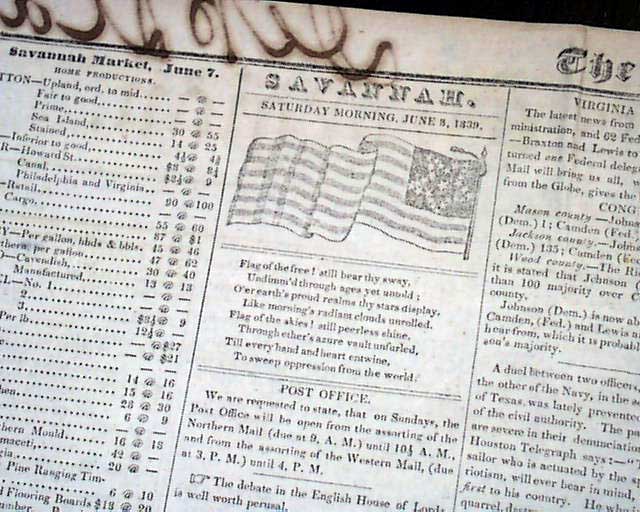 Savannah Market, June 7.
HOME PRODUCTIONS.
TTON—Upland, ord. to mid...... — @ —
Fair to good,............ — @ —
Prime,............ — @ —
Sea Island,............ — @ —
Stained,............ 30 @ 55
—Inferior to good,............ 14 @ 25
R—Howard St.
Canal,
Philadelphia and Virginia
—Retail,............ — @ —
Cargo,............ 90 @100
55 @ 60
Y—Per gallon, hhds & bbls. 87 @ $1
thern, per gallon,............ 45 @ 46
—Cavendish,............ 47 @ 62
Manufactured,............ 30 @ 40
L—No. 1,............ 13 @ 13
2,............ — @ —
3,............ — @ —
Per lb.
12½@ —
— @$27
— @$21
14 @ 16
15 @ 16
23 @ 30
6 @ 9
hern Mould—............ — @ —
maceti,............ 16 @ 18
42 @ —
20 @ —
Pine Ranging Tim-
6 @ 10
Flooring Boards $18 @ 20
SAVANNAH.
SATURDAY MORNING, JUNE 8, 1839.
Flag of the free! still bear thy sway,
Undimm'd through ages yet untold;
O'er earth's proud realms thy stars display,
Like morning's radiant clouds unrolled.
Flag of the skies! still peerless shine,
Through ether's azure vault unfurled,
Till every hand and heart entwine,
To sweep oppression from the world.
POST OFFICE.
We are requested to state, that on Sundays, the
Post Office will be open from the assorting of the
Northern Mail (due at 9, A. M.) until 10½ A. M.,
and from the assorting of the Western Mail, (due
at 3, P. M.) until 4, P. M.
☞ The debate in the English House of Lords
is well worth perusal.
The
VIRGINIA
The latest news from
ministration, and 62 Fed
—Braxton and Lewis to
turned one Federal delega
Mail will bring us all,
from the Globe, gives the
CONG
Mason county—Johns
(Dem.) 1; Camden (Fed.
Jackson county.—John
(Dem.) 135; Camden
Wood county.—The R
it is stated that Johnson (
than 100 majority over
county.
Johnson (Dem.) is now ab
Camden, (Fed.) and Lewis an
hear from, which it is probabl
son's majority.
A duel between two officer
the other of the Navy, in the
of Texas, was lately prevente
of the civil authority. The pa
are severe in their denunciation
Houston Telegraph says:—
sailor who is actuated by the
riotism, will ever bear in mind,
first to his country. He who
quarrel, destroy